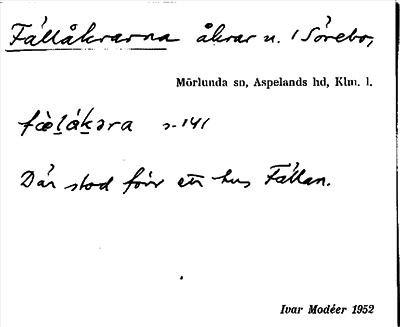 Fällåkrarna åkrar n. i Sörebo,
Mörlunda sn, Aspelands hd, Klm. l.
Där stod förr ett hus Fällan.
Ivar Modéer 1952